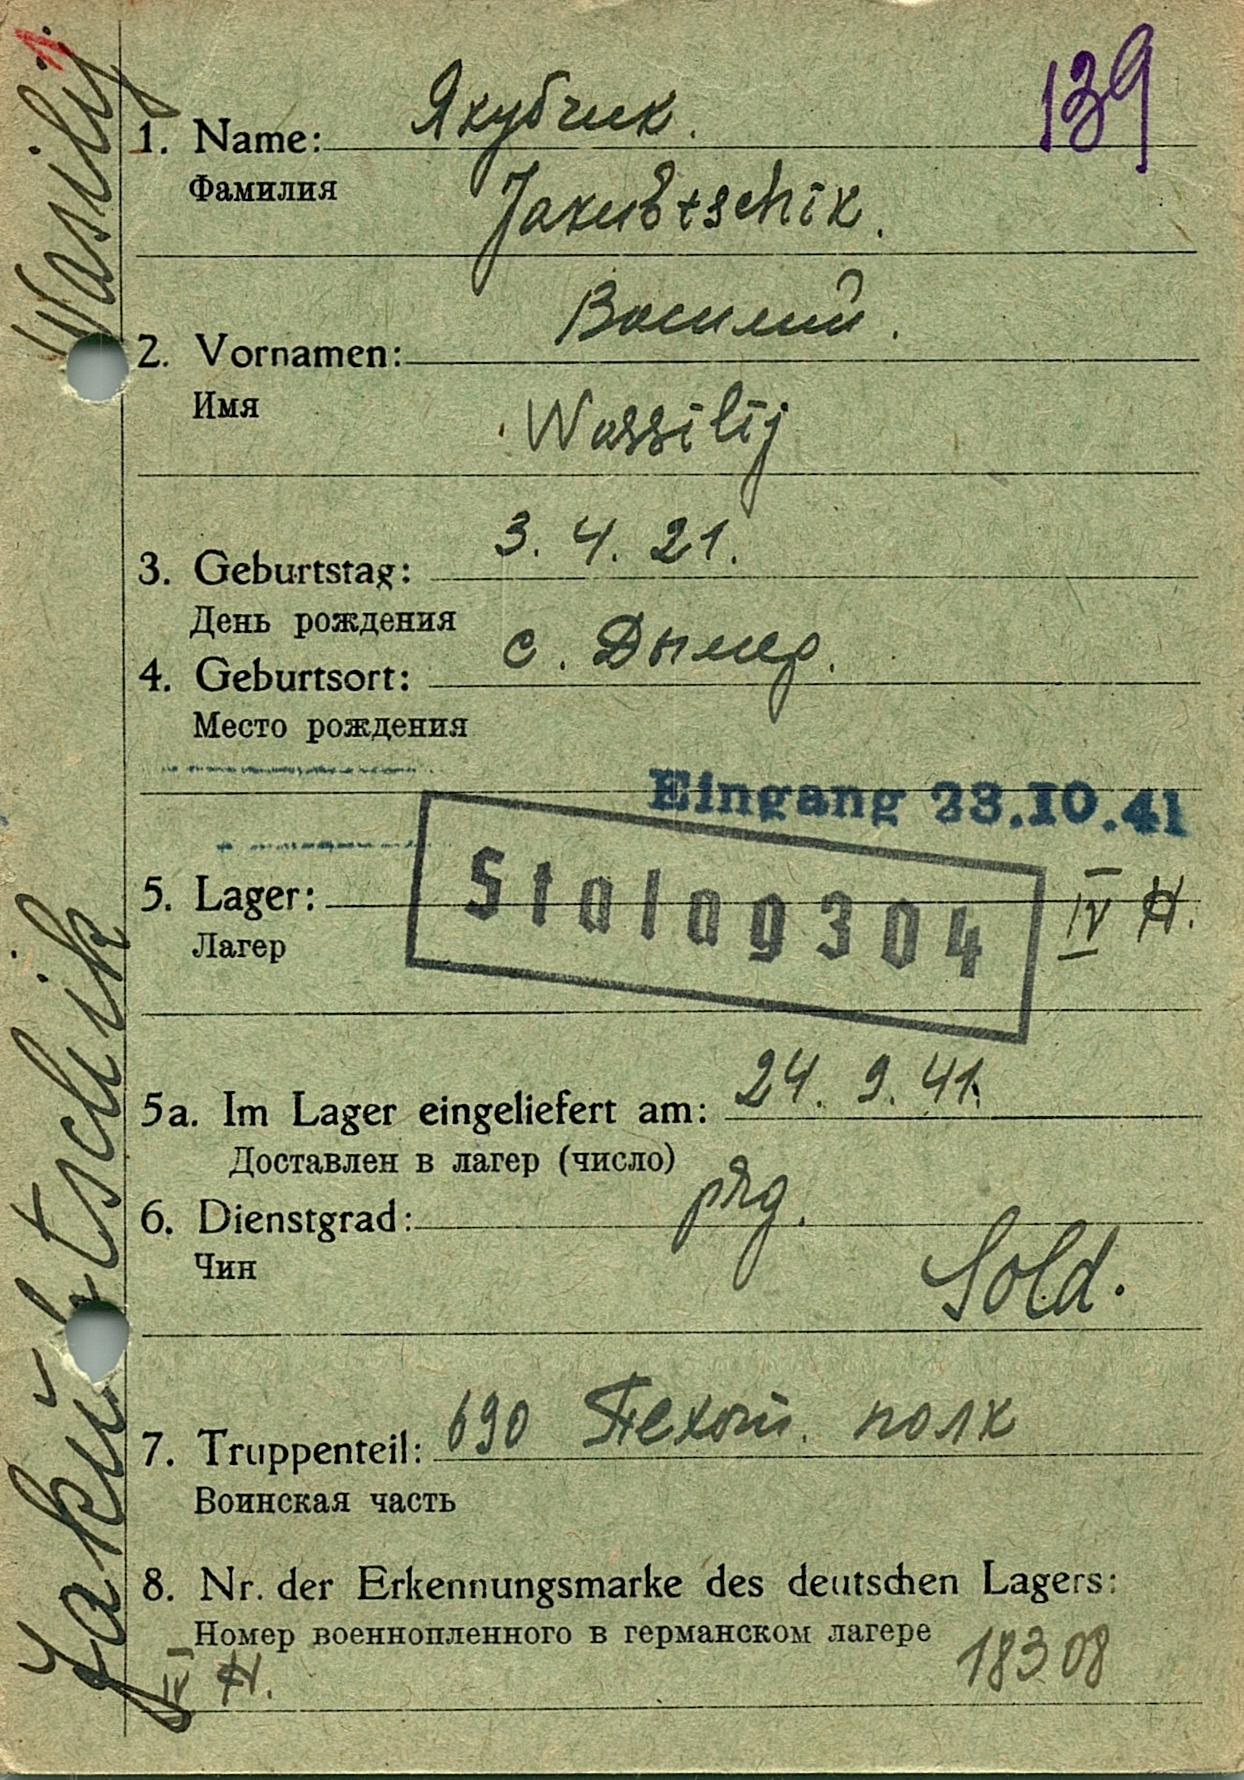 139
1. Name: Якубчик.
Фамилия
Jakubtschik.
2. Vornamen: Василий.
Имя
Wassilij
3. Geburtstag: 3. 4. 21.
День рождения
4. Geburtsort: с. Дымер.
Место рождения
Eingang 23.10.41
5. Lager: Stalag 304 IV H.
Лагер
5a. Im Lager eingeliefert am: 24. 9. 41.
Доставлен в лагер (число)
6. Dienstgrad: ряд.
Чин
Sold.
7. Truppenteil: 690 Пехот. полк
Воинская часть
8. Nr. der Erkennungsmarke des deutschen Lagers:
Номер военнопленного в германском лагере 18308
IV H.
Jakubtschik Wasilij